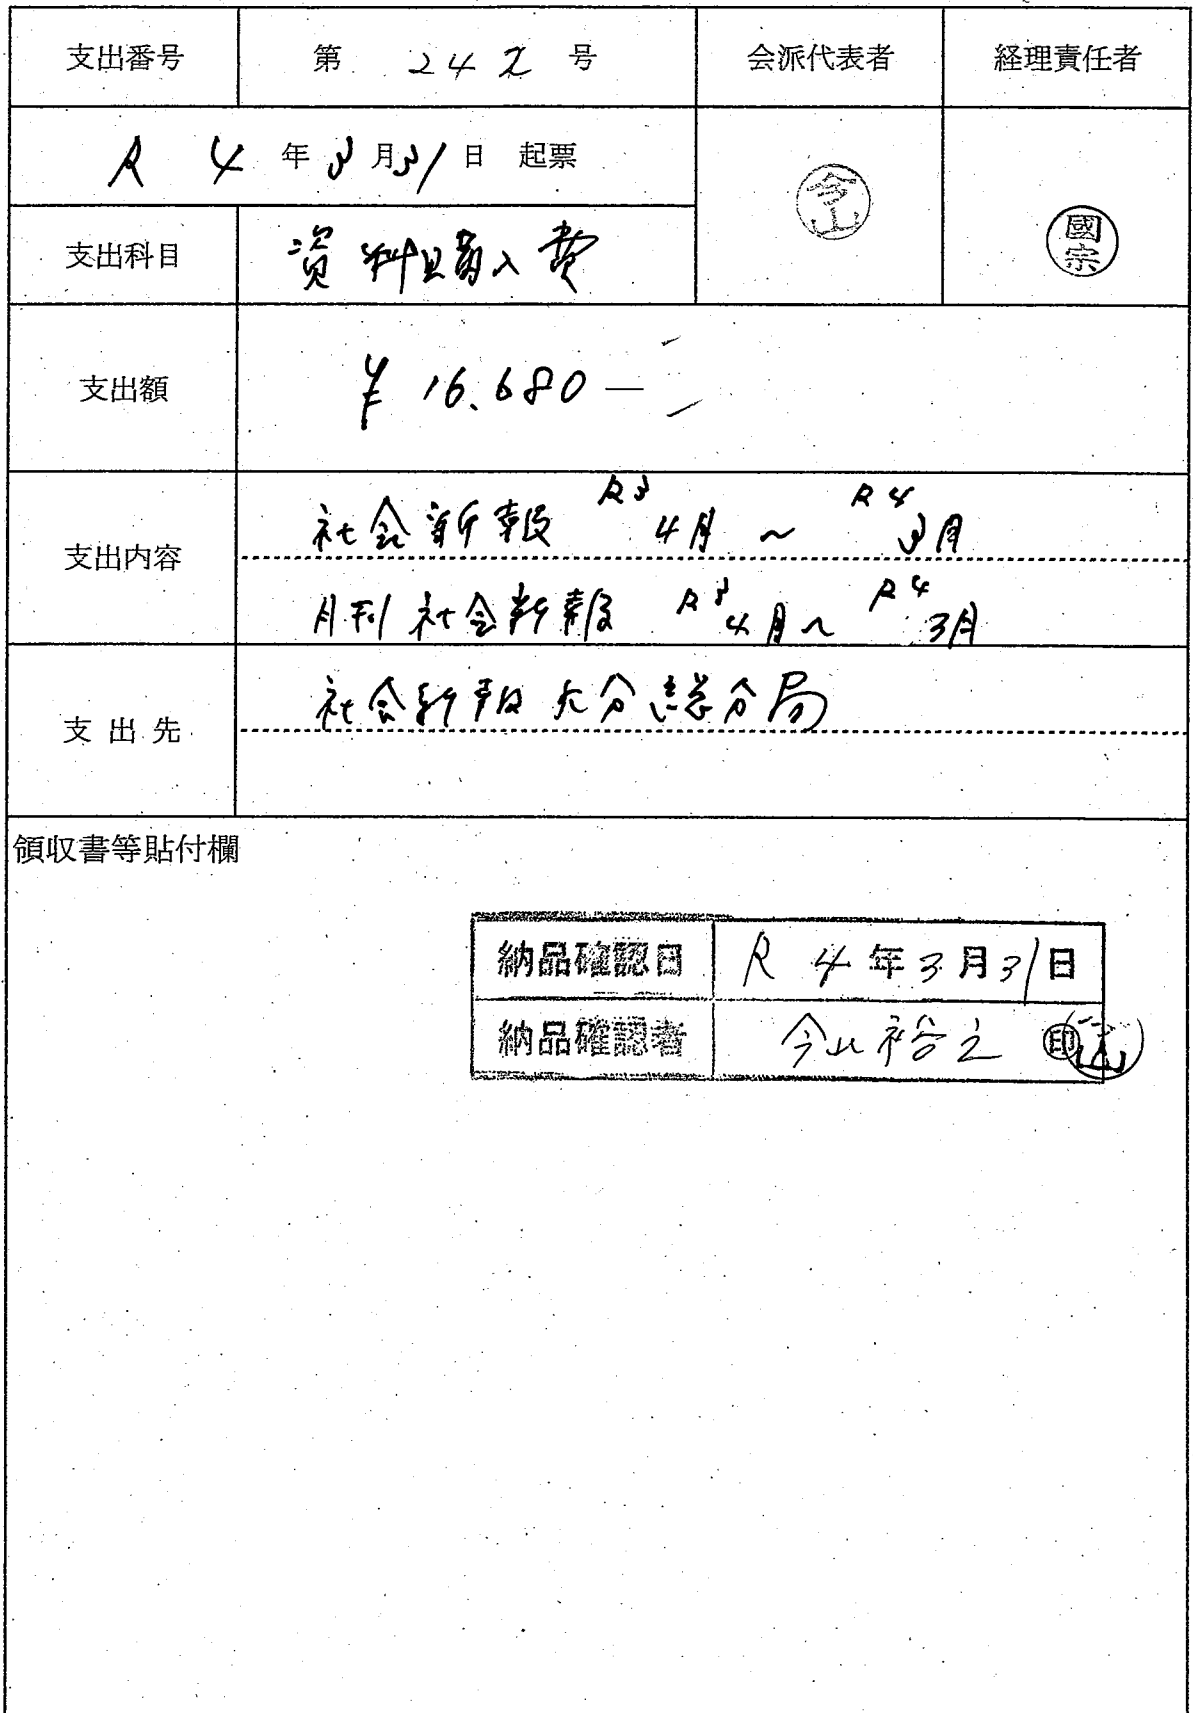 支出番号 第 242 号 会派代表者 経理責任者
R 4 年 3 月 31 日 起票
今山
國宗
支出科目 資料購入費
支出額 ¥ 16.680 —
支出内容 社会新報 R3 4月 ~ R4 3月
月刊 社会新報 R3 4月~ R4 3月
支出先 社会新報 大分総分局
領収書等貼付欄
納品確認日 R 4 年 3 月 31 日
納品確認者 今山 裕之 印